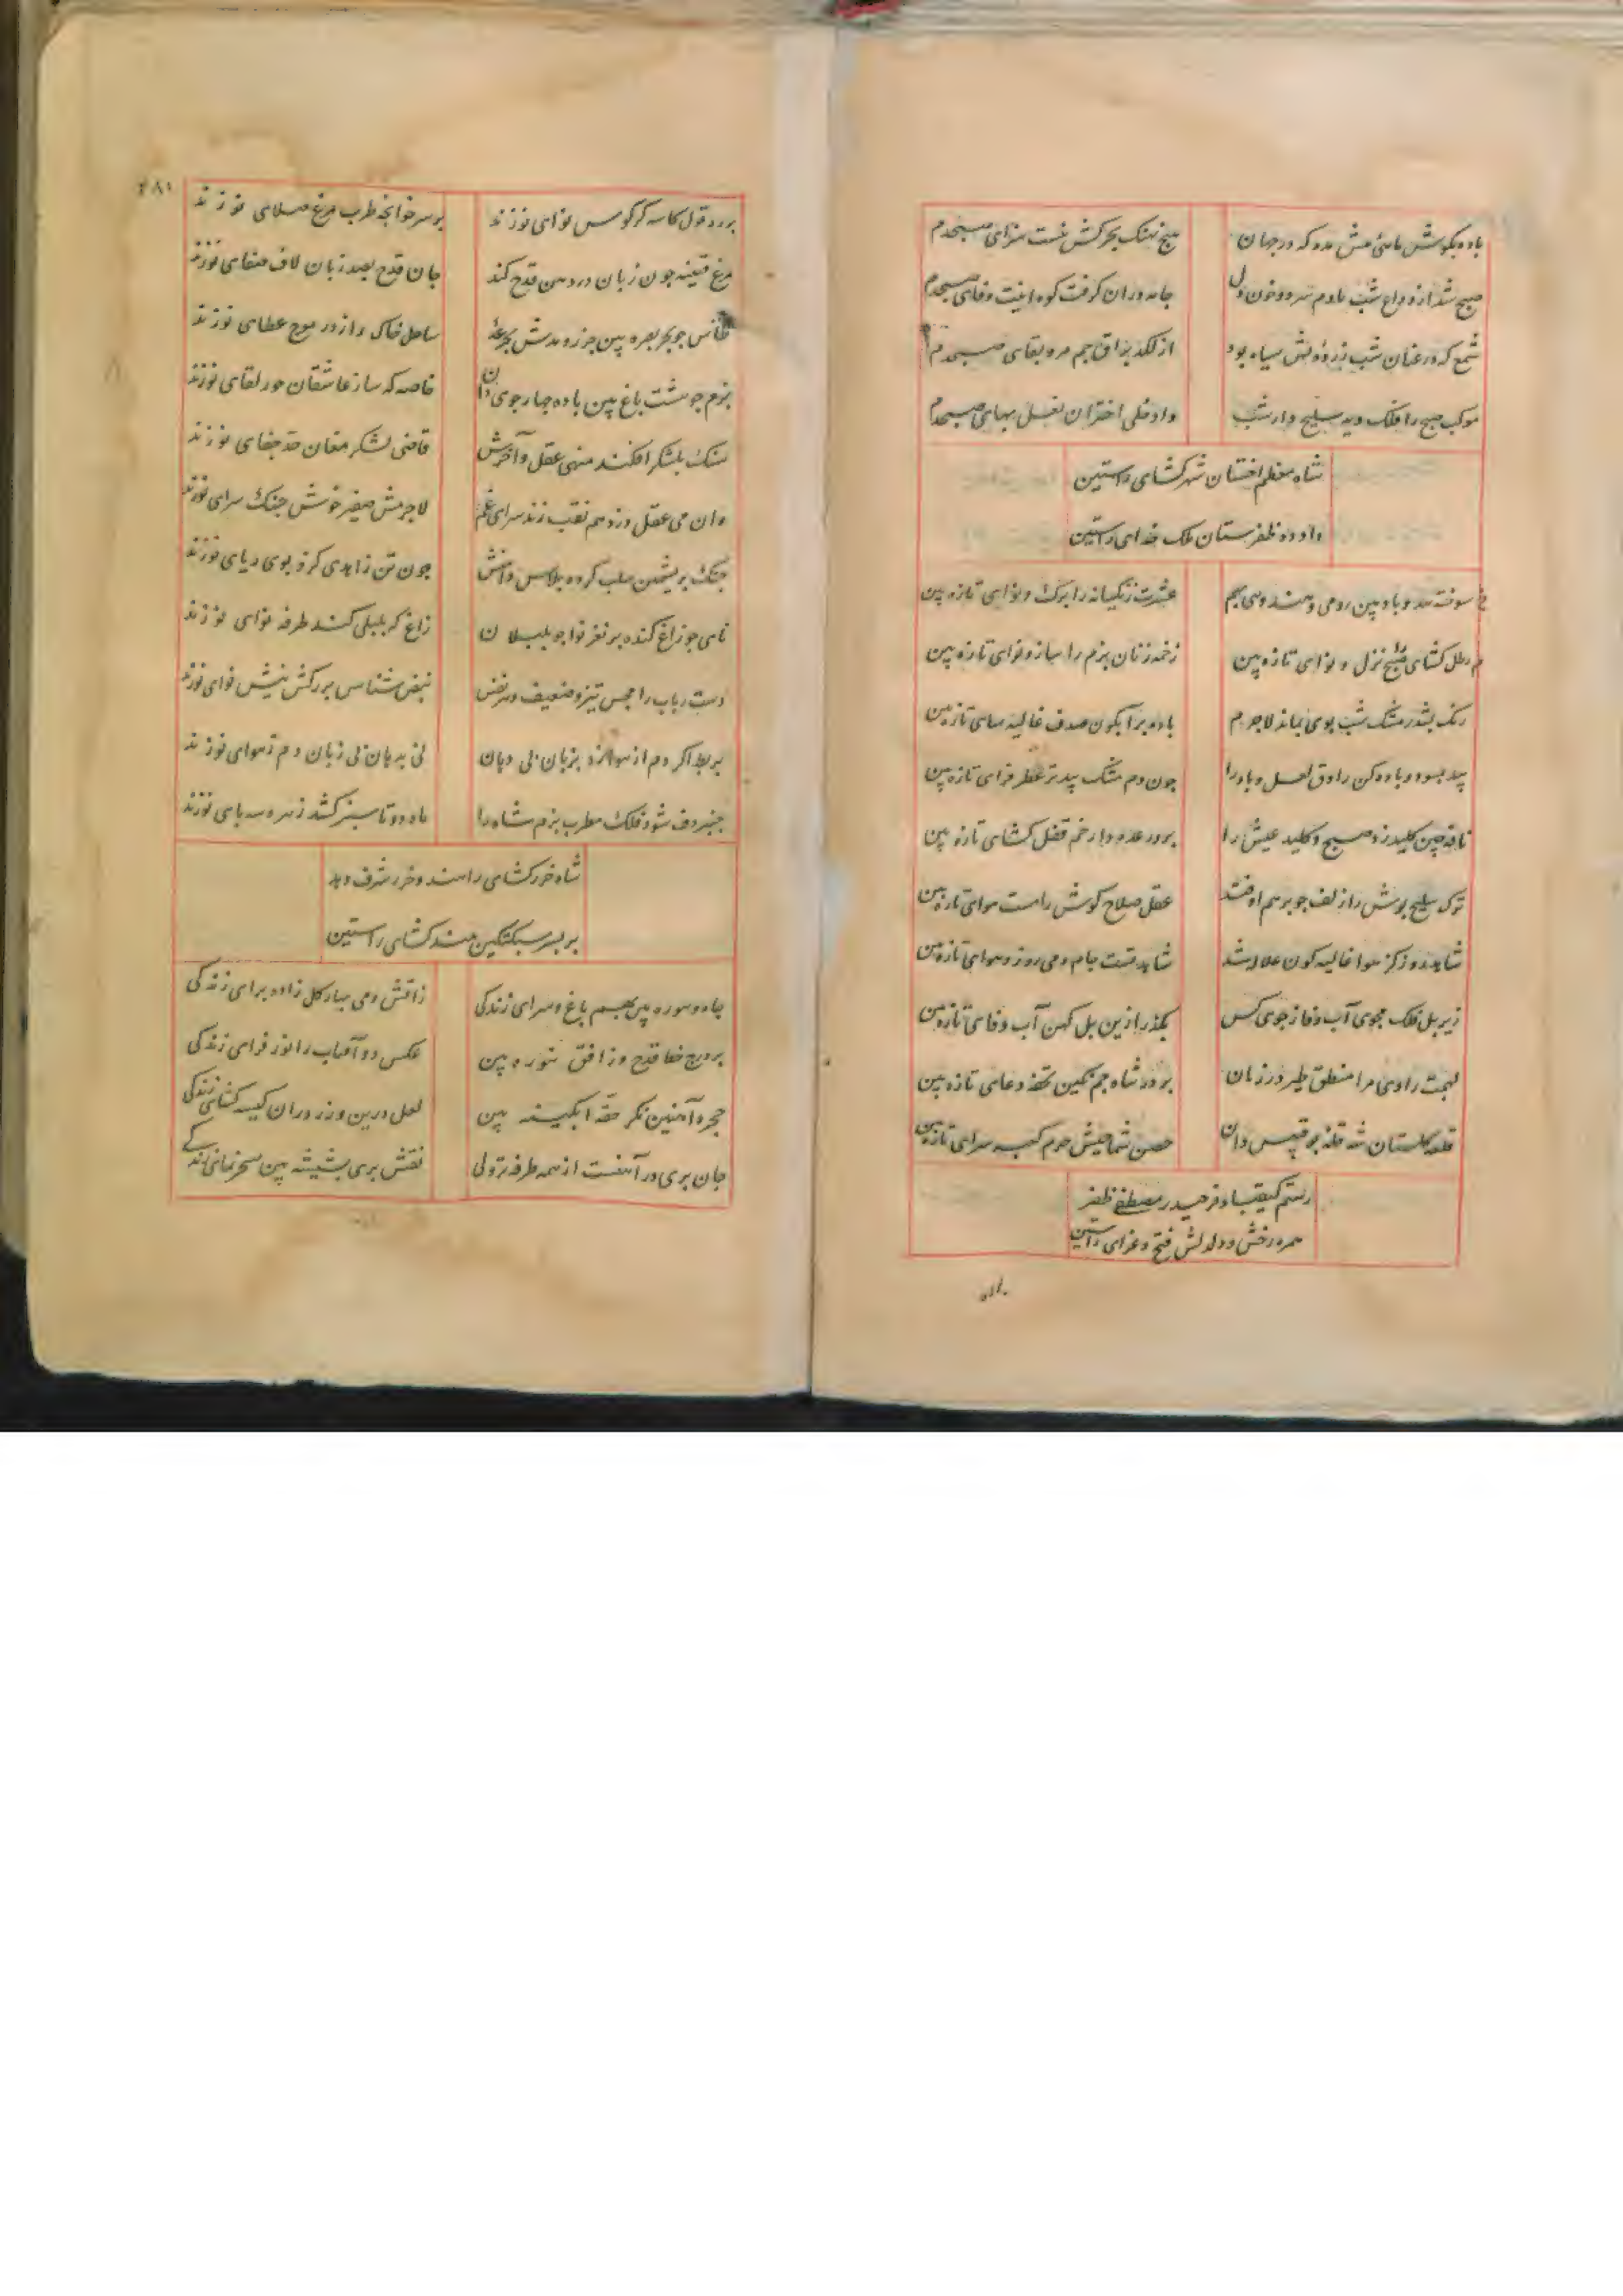 باده بگوش ماهی مش مده که در جهان
هیچ نهنگ بحرکش نیست سزای صبحدم
صبح شد از وداع شب با دم سرد و خون دل
جامه دران گرفت کوه اینت وفای صبحدم
شمع که در عنان شب زرده وش سیاه بود
از لکد براق جم مرد بقای صبحدم
موکب صبح را فلک دید سلیح دار شب
داد حلی اختران نعل بهای صبحدم
شاه معظم اختسان شهر کشای راستین
داد ده ظفرستان ملک خدای راستین
سوخته بید و باده بین رومی و هندوی بهم
عشرت زنگیانه را برک و نوای تازه بین
رطل کشای صبح را نزل و نوای تازه بین
زخمه زنان بزم را ساز و نوای تازه بین
رنک بشد ز مشک شب بوی نماند لاجرم
باد بر آبکون صدف غالیه سای تازه بین
بید بسوز و باده کن راوق لعل و باد را
چون دم مشک بید تر عطر فزای تازه بین
نافه چین کلید زد صبح و کلید عیش را
بر در عده دار خم قفل کشای تازه بین
ترک سلیح پوش را زلف چو برهم اوفتد
عقل صلاح کوش را مست هوای تازه بین
شاهد روز کز هوا غالیه کون غلاله شد
شاهد تست جام و می روز و هوای تازه بین
زیر پل فلک مجوی آب وفا ز جوی کس
بکذر ازین پل کهن آب وفای تازه بین
لهجت راوی مرا منطق طیر در زبان
بر در شاه جم نگین تحفه دعای تازه بین
قلعه کلستان شه قله بوقبیس دان
حصن شماخیش حرم کعبه سرای تازه بین
رستم کیقباد فر حیدر مصطفی ظفر
همره رخش و دلدلش فتح و غزای راستین
۲۸۱
بر در قول کاسه کر کوس نوای نو زند
بر سر خوانچه طرب مرغ صلای نو زند
مرغ قنینه چون زبان در دهن قدح کند
جان قدح بصد زبان لاف صفای نو زند
طاس چو بحر بصره بین جزر و مدش بجرعه
ساحل خاک را ز در موج عطای نو زند
بزم چو هشت باغ بین باده چهار جوی دان
خاصه که ساز عاشقان حور لقای نو زند
سنک بلشکر افکند منهی عقل و آخرش
قاضی لشکر مغان حد جفای نو زند
وان می عقل دزد هم نقب زند سرای غم
لاجرمش صفیر خوش جنک سرای نو زند
جنک بریشمین سلب کرده پلاس دامنش
چون تن زاهدی کزو بوی ریای نو زند
نای چو زاغ کنده پر نغز نوا چو بلبلان
زاغ که بلبلی کند طرفه نوای نو زند
دست رباب را مجس تیز و ضعیف و هر نفس
نبض شناس بر رکش نیش نوای نو زند
بربط اکر دم از هوا زد بزبان بی دهان
نی بدهان بی زبان دم ز هوای نو زند
چنبر دف شود فلک مطرب بزم شاه را
ماه دو تا سبز کشد زهره سه بای نو زند
شاه خزر کشای را هند و خزر شرف دهد
بر پسر سبکتکین هند کشای راستین
چاه و سوره بین بهم باغ و سرای زندگی
زاتش و می بهار کل زاده برای زندگی
عکس دو آفتاب را نور فزای زندگی
حجره آهنین نکر حقه ابکینه بین
لعل درین و زر دران کیسه کشای زندگی
جان پری در آهنست از همه طرفه تر ولی
نقش پری بشیشه بین سحر نمای زندگی